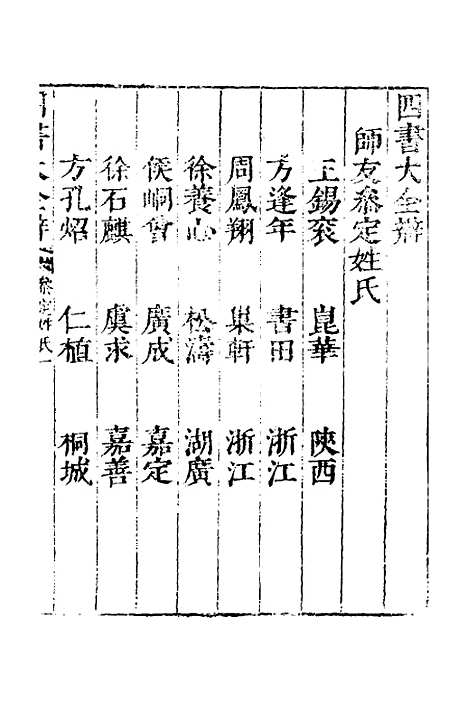 四書大全辯
師友叅定姓氏
王錫袞 崑華 陜西
方逢年 書田 浙江
周鳳翔 巢軒 浙江
徐養心 松濤 湖廣
侯峒曾 廣成 嘉定
徐石麒 虞求 嘉善
方孔炤 仁植 桐城
四書大全辯 叅定姓氏一